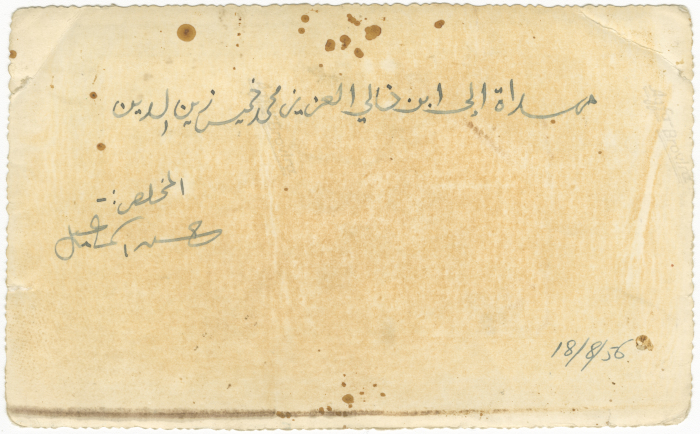 مهداة إلى ابن خالي العزيز محمد خميس زين الدين
المخلص :-
حسن اسماعيل
18/8/56